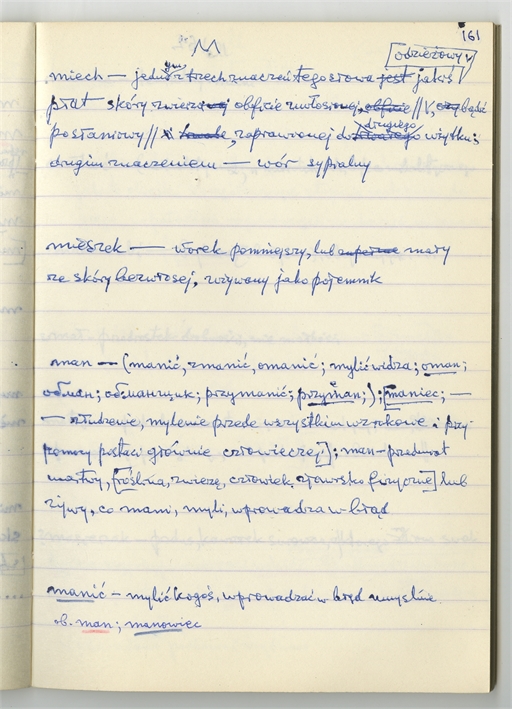 161
M
odzieżowy
miech — jedno z trzech znaczeń tego słowa jest jakiś
płat skóry obficie włosionej, obficie // V, czy bądź
posłaniowy // zaprawionej do drugiego użytku;
drugim znaczeniem — wór sypialny
mieszek — worek pomniejszy, lub zupełnie mały
ze skóry bezwłosej, używany jako pojemnik
man — (manić, zmanić, omanić; mylić widza; oman;
обман; обманщик; przymanić; przyman;); [maniec; —
— złudzenie, mylenie przede wszystkim wzrokowe i przy
pomocy postaci głównie człowieczej]; man – przedmiot
martwy, [roślina, zwierzę, człowiek, zjawisko fizyczne] lub
żywy, co mami, myli, wprowadza w błąd
manić – mylić kogoś, wprowadzać w błąd umyślnie
ob. man; manowiec